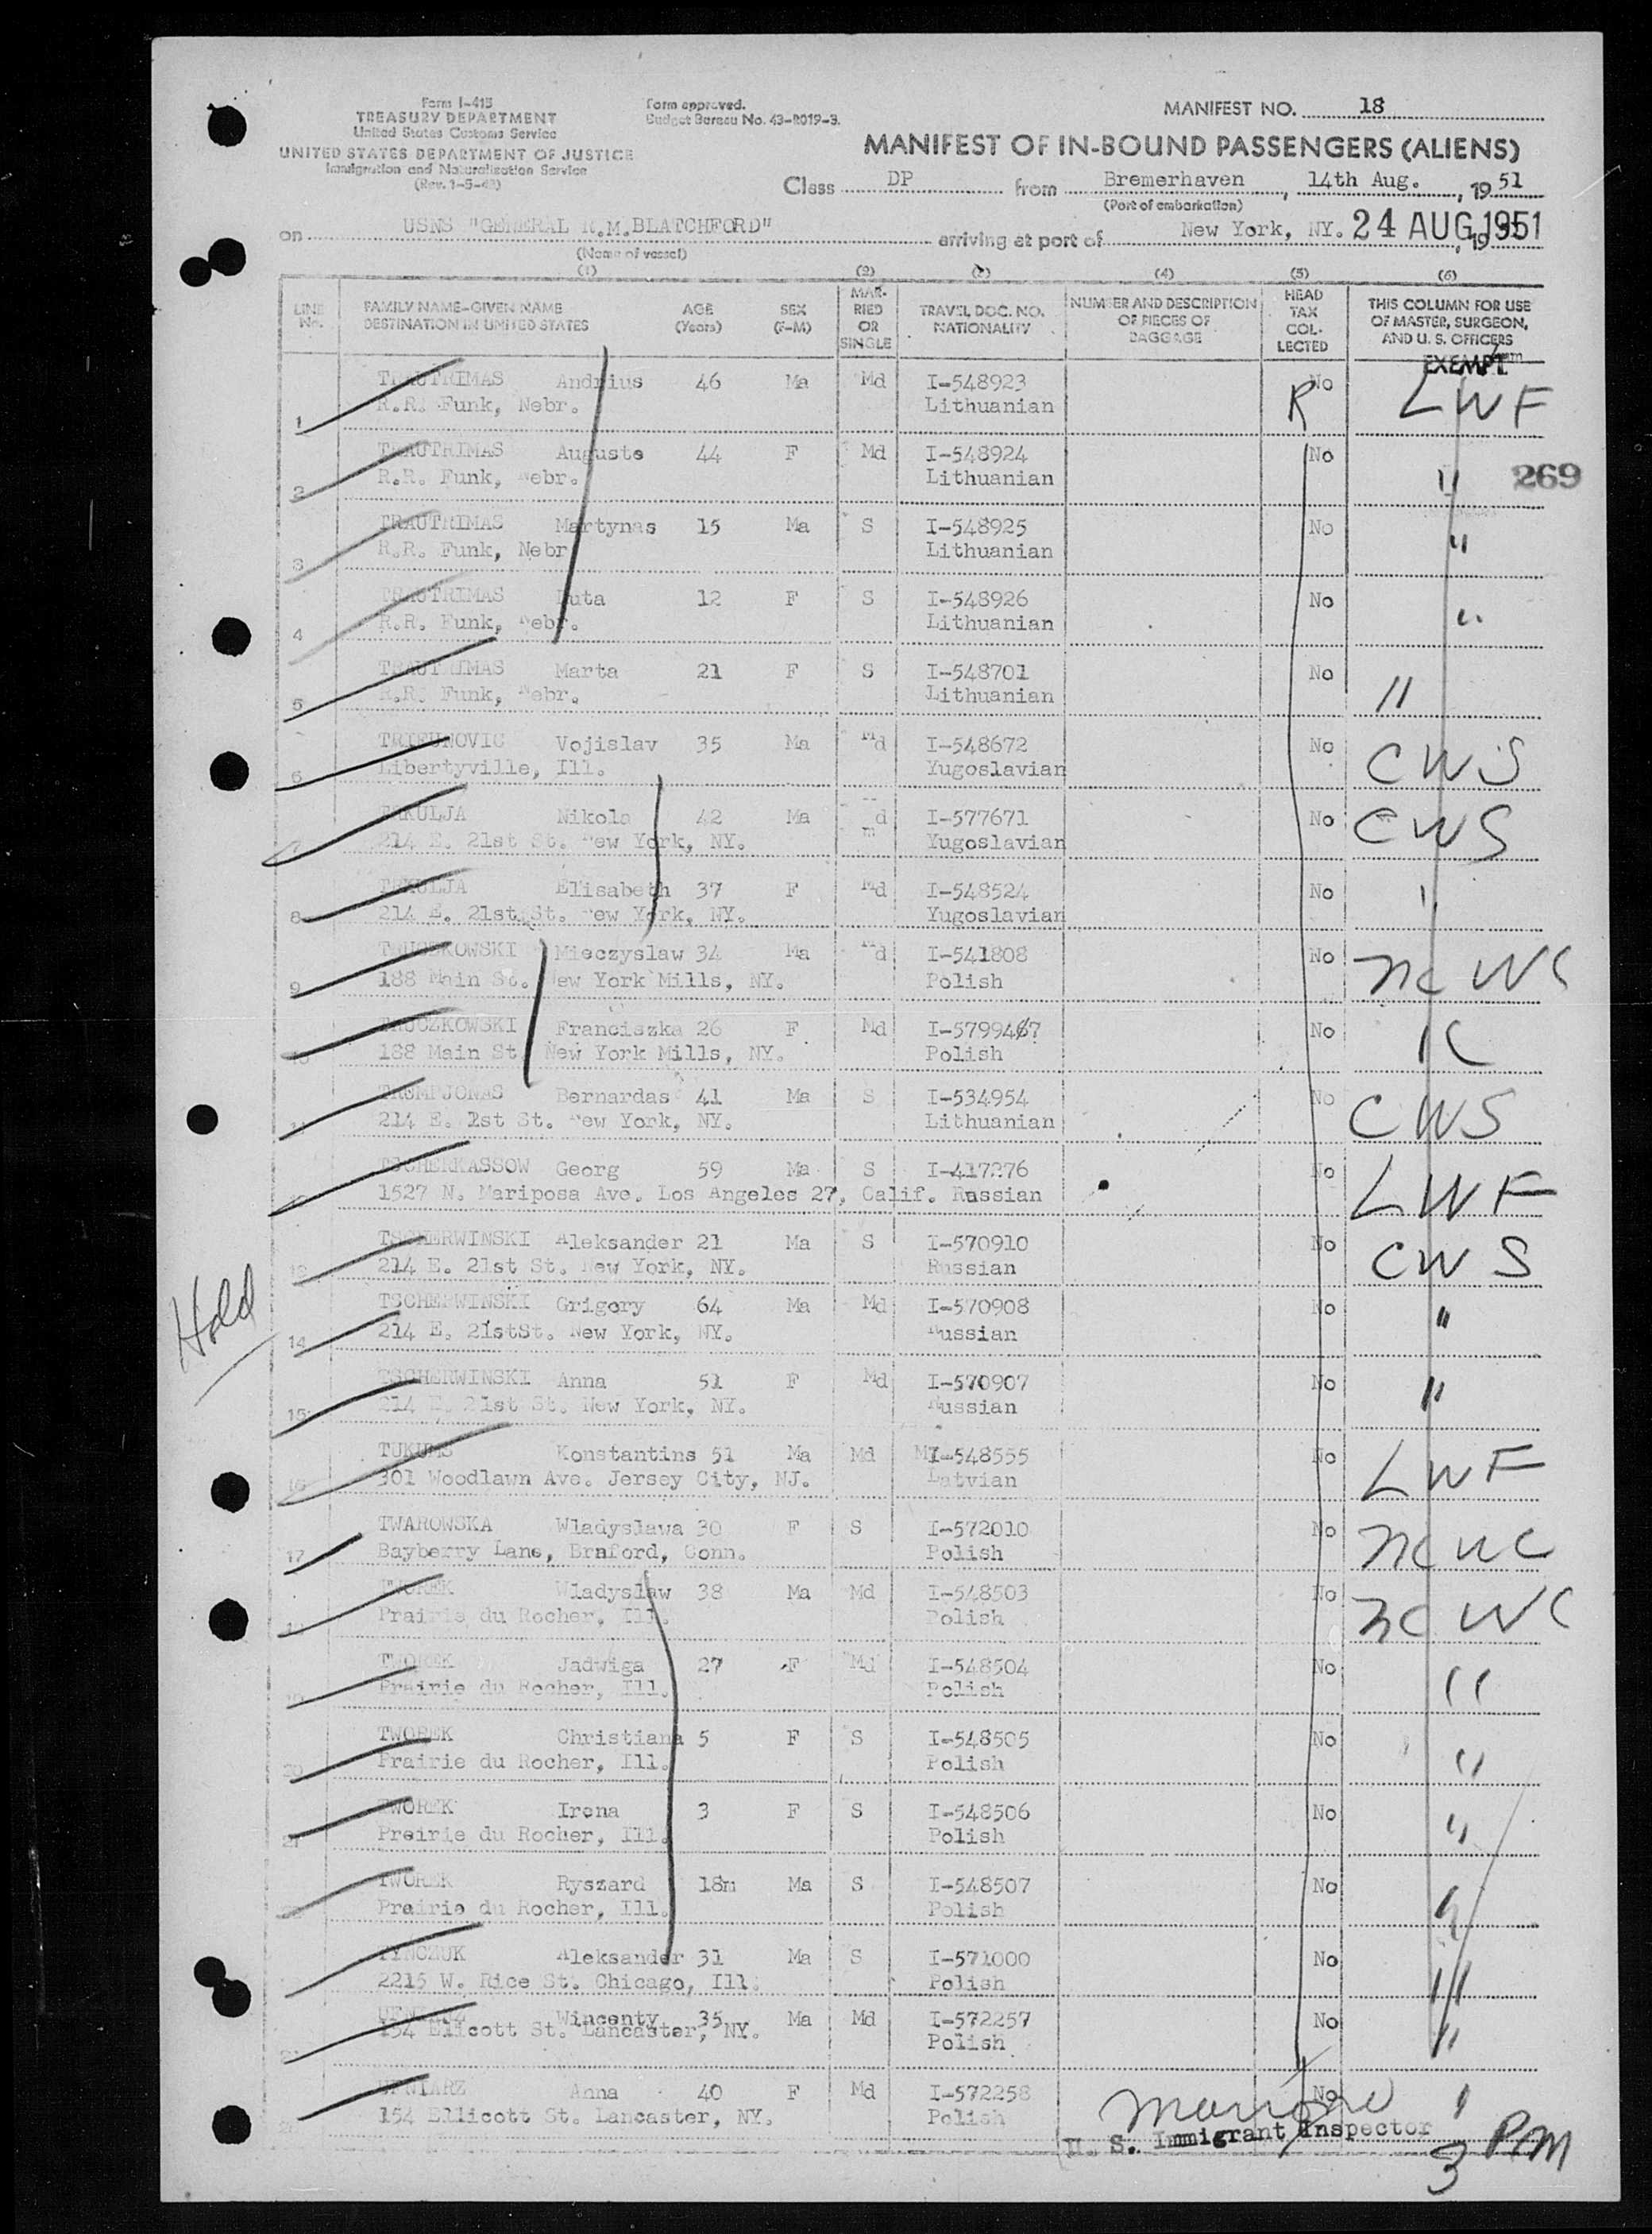 Form I-415
TREASURY DEPARTMENT
United States Customs Service
UNITED STATES DEPARTMENT OF JUSTICE
Immigration and Naturalization Service
Form approved.
Budget Bureau No. 43-R019-3.
MANIFEST NO. 18
MANIFEST OF IN-BOUND PASSENGERS (ALIENS)
Class DP from Bremerhaven, 14th Aug., 1951
(Port of embarkation)
on USNS "GENERAL R.M.BLATCHFORD" arriving at port of New York, NY. 24 AUG 1951
(Name of vessel)
(1) (2) (3) (4) (5) (6)
LINE No. FAMILY NAME-GIVEN NAME DESTINATION IN UNITED STATES AGE (Years) SEX (F-M) MARRIED OR SINGLE TRAVEL DOC. NO. NATIONALITY NUMBER AND DESCRIPTION OF PIECES OF BAGGAGE HEAD TAX COLLECTED THIS COLUMN FOR USE OF MASTER, SURGEON, AND U. S. OFFICERS
EXEMPT
TRAUTRIMAS Andrius 46 Ma Md I-548923 No LWF
1 R.R. Funk, Nebr. Lithuanian R
TRAUTRIMAS Auguste 44 F Md I-548924 No
2 R.R. Funk, Nebr. Lithuanian " 269
TRAUTRIMAS Martynas 15 Ma S I-548925 No
3 R.R. Funk, Nebr Lithuanian "
TRAUTRIMAS Ruta 12 F S I-548926 No
4 R.R. Funk, Nebr. Lithuanian "
TRAUTRIMAS Marta 21 F S I-548701 No
5 R.R. Funk, Nebr. Lithuanian "
TRIFUNOVIC Vojislav 35 Ma Md I-548672 No
6 Libertyville, Ill. Yugoslavian CWS
Nikola 42 Ma I-577671 No CWS
7 214 E. 21st St. New York, NY. Yugoslavian
Elisabeth 37 F Md I-548524 No "
8 214 E. 21st St. New York, NY. Yugoslavian
Mieczyslaw 34 Ma Md I-541808 No
9 188 Main St. New York Mills, NY. Polish NCWC
TRUCZKOWSKI Franciszka 26 F Md No
10 188 Main St. New York Mills, NY. Polish "
Bernardas 41 Ma S I-534954 No
11 214 E. 21st St. New York, NY. Lithuanian CWS
TSCHERKASSOW Georg 59 Ma S I-417276 No
1527 N. Mariposa Ave. Los Angeles 27, Calif. Russian LWF
TSCHERWINSKI Aleksander 21 Ma S I-570910 No
13 214 E. 21st St. New York, NY. Russian CWS
Hold
TSCHERWINSKI Grigory 64 Ma Md I-570908 No
14 214 E. 21stSt. New York, NY. Russian "
TSCHERWINSKI Anna 51 F Md I-570907 No
15 214 E. 21st St. New York, NY. Russian "
TUKUMS Konstantins 51 Ma Md I-548555 No
16 301 Woodlawn Ave. Jersey City, NJ. Latvian LWF
TWAROWSKA Wladyslawa 30 F S I-572010 No
17 Bayberry Lane, Branford, Conn. Polish NCWC
TWOREK Wladyslaw 38 Ma Md I-548503 No
Prairie du Rocher, Ill. Polish NCWC
TWOREK Jadwiga 27 F Md I-548504 No
19 Prairie du Rocher, Ill. Polish "
TWOREK Christiana 5 F S I-548505 No
20 Prairie du Rocher, Ill. Polish "
TWOREK Irena 3 F S I-548506 No
21 Prairie du Rocher, Ill. Polish "
TWOREK Ryszard 18m Ma S I-548507 No
Prairie du Rocher, Ill. Polish "
TYNCZUK Aleksander 31 Ma S I-571000 No
2215 W. Rice St. Chicago, Ill. Polish "
Wincenty 35 Ma Md I-572257 No
154 Ellicott St. Lancaster, NY. Polish "
Anna 40 F Md I-572258 No
154 Ellicott St. Lancaster, NY. Polish "
U. S. Immigrant Inspector
3 PM